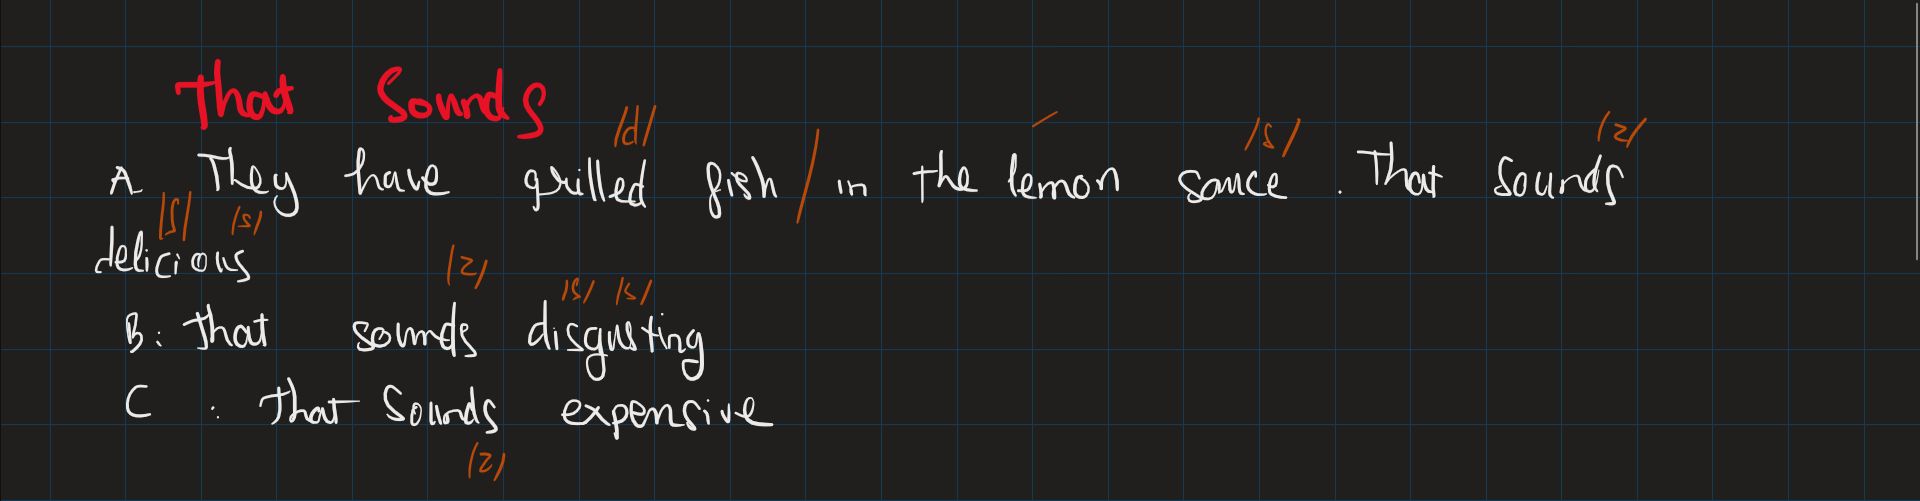 That Sounds
/d/ /s/ /z/
A They have grilled fish / in the lemon sauce. That sounds
/ʃ/ /s/
delicious
/z/ /s/ /s/
B: that sounds disgusting
C : that sounds expensive
/z/